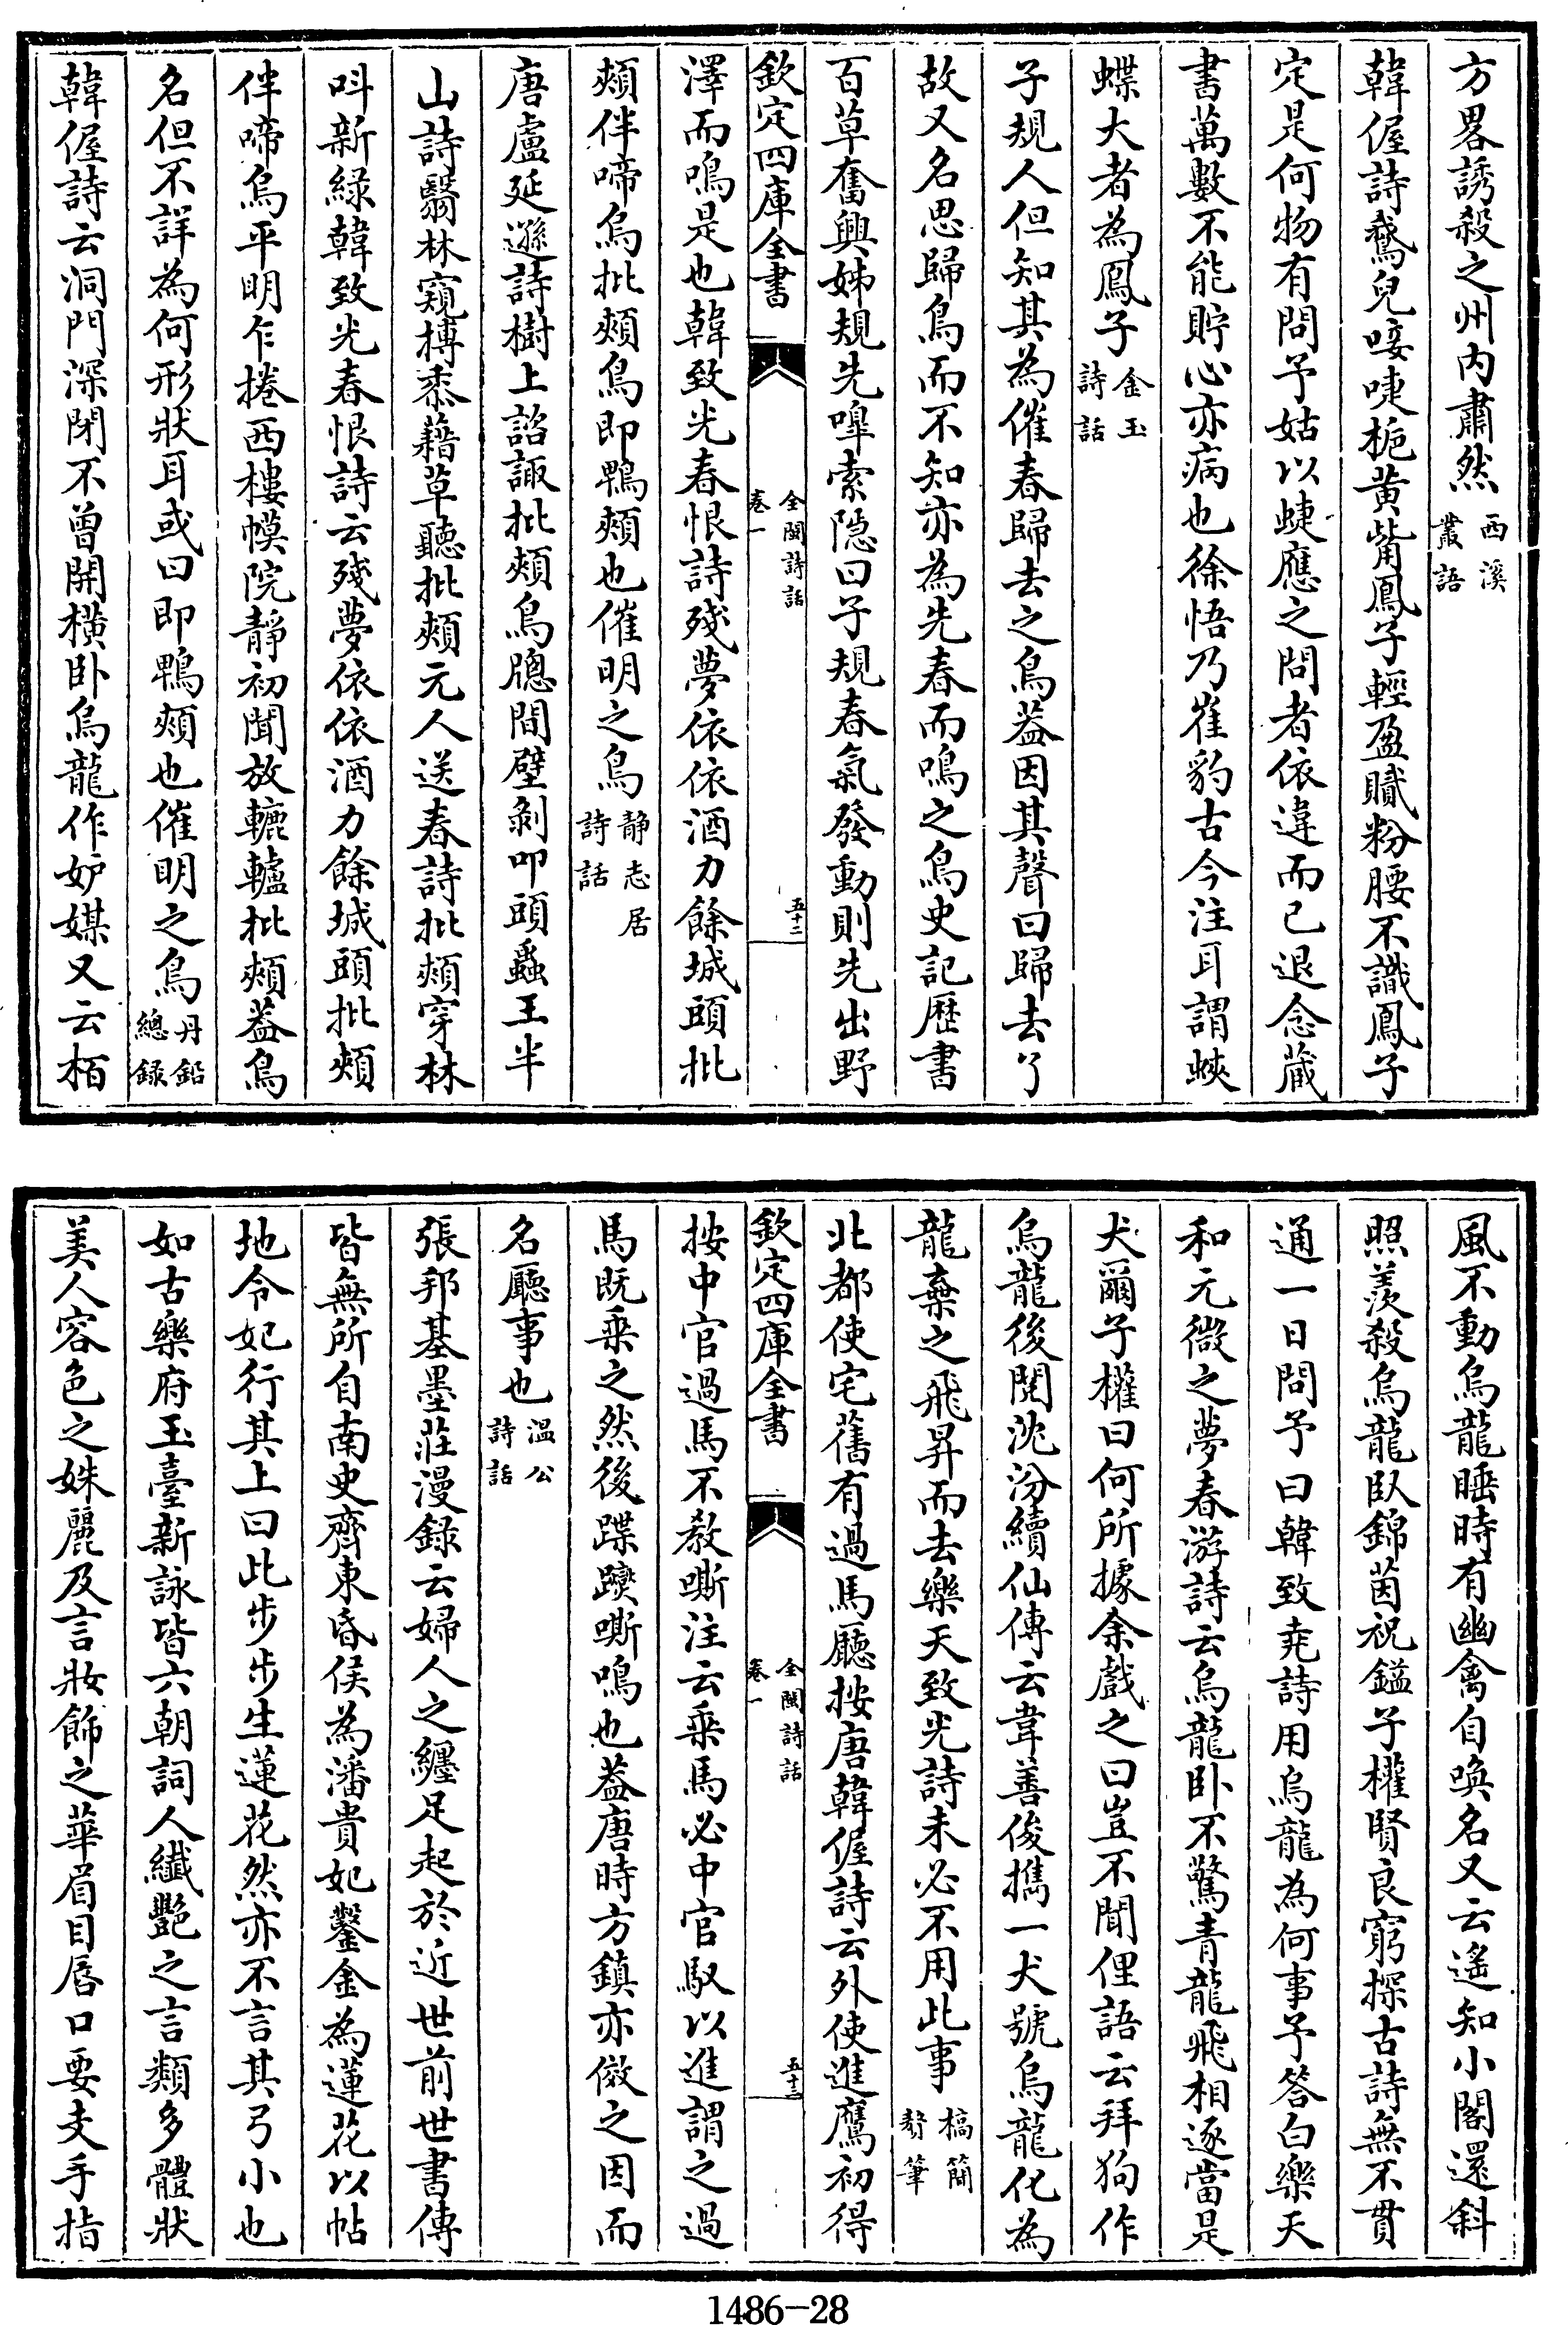 方畧誘殺之州内肅然西溪叢語
韓偓詩鵞兒唼啑梔黄觜鳳子輕盈膩粉腰不識鳳子
定是何物有問予姑以蜨應之問者依違而已退念藏
書萬數不能貯心亦病也徐悟乃崔豹古今注耳謂蛺
蝶大者為鳳子金玉詩話
子規人但知其為催春歸去之鳥葢因其聲曰歸去了
故又名思歸鳥而不知亦為先春而鳴之鳥史記歴書
百草奮興姊規先嘷索隠曰子規春氣發動則先出野
欽定四庫全書 全閩詩話 卷一 五十二
澤而鳴是也韓致光春恨詩殘夢依依酒力餘城頭批
頰伴啼烏批頰鳥即鵯頰也催明之鳥静志居詩話
唐盧延遜詩樹上諮諏批頰鳥牕間壁剝叩頭蟲王半
山詩翳林窺搏黍藉草聽批頰元人送春詩批頰穿林
呌新緑韓致光春恨詩云殘夢依依酒力餘城頭批頰
伴啼烏平明乍捲西樓幙院靜初聞放轆轤批頰葢鳥
名但不詳為何形狀耳或曰即鵯頰也催明之鳥丹鉛總録
韓偓詩云洞門深閉不曾開横卧烏龍作妒媒又云栢
風不動烏龍睡時有幽禽自喚名又云遙知小閣還斜
照羨殺烏龍臥錦茵祝鎰子權賢良窮探古詩無不貫
通一日問予曰韓致堯詩用烏龍為何事予答白樂天
和元微之夢春游詩云烏龍卧不驚青龍飛相逐當是
犬爾子權曰何所據余戲之曰豈不聞俚語云拜狗作
烏龍後閲沈汾續仙傳云韋善俊攜一犬號烏龍化為
龍棄之飛昇而去樂天致光詩未必不用此事槁簡贅筆
北都使宅舊有過馬廳按唐韓偓詩云外使進鷹初得
欽定四庫全書 全閩詩話 卷一 五十三
按中官過馬不教嘶注云乗馬必中官馭以進謂之過
馬既乗之然後蹀躞嘶鳴也葢唐時方鎮亦傚之因而
名廳事也温公詩話
張邦基墨莊漫録云婦人之纏足起於近世前世書傳
皆無所自南史齊東昏侯為潘貴妃鑿金為蓮花以帖
地令妃行其上曰此步步生蓮花然亦不言其弓小也
如古樂府玉臺新詠皆六朝詞人纖艷之言類多體狀
美人容色之姝麗及言妝飾之華眉目唇口要支手指
1486-28